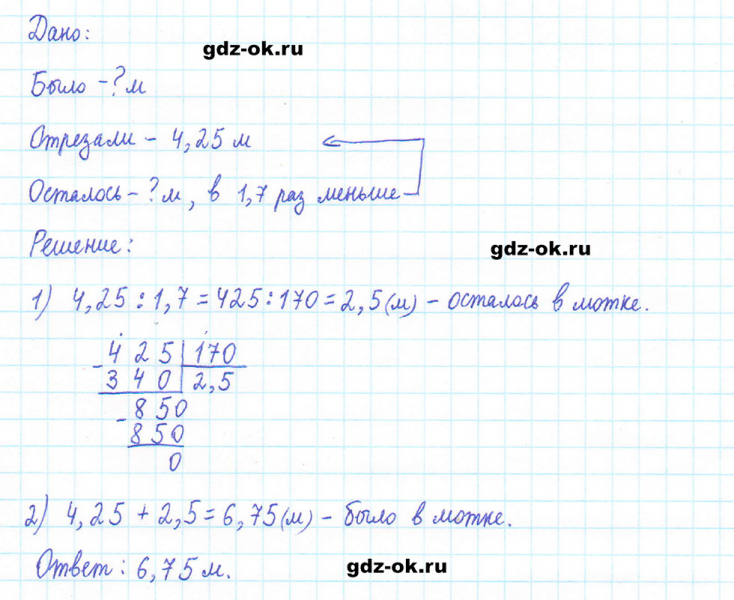 Дано:
gdz-ok.ru
Было - ? м
Отрезали - 4,25 м
Осталось - ? м, в 1,7 раз меньше
Решение:
gdz-ok.ru
1) 4,25 : 1,7 = 425 : 170 = 2,5 (м) - осталось в мотке.
- 425 | 170
340 | 2,5
- 850
850
0
2) 4,25 + 2,5 = 6,75 (м) - было в мотке.
Ответ: 6,75 м.
gdz-ok.ru